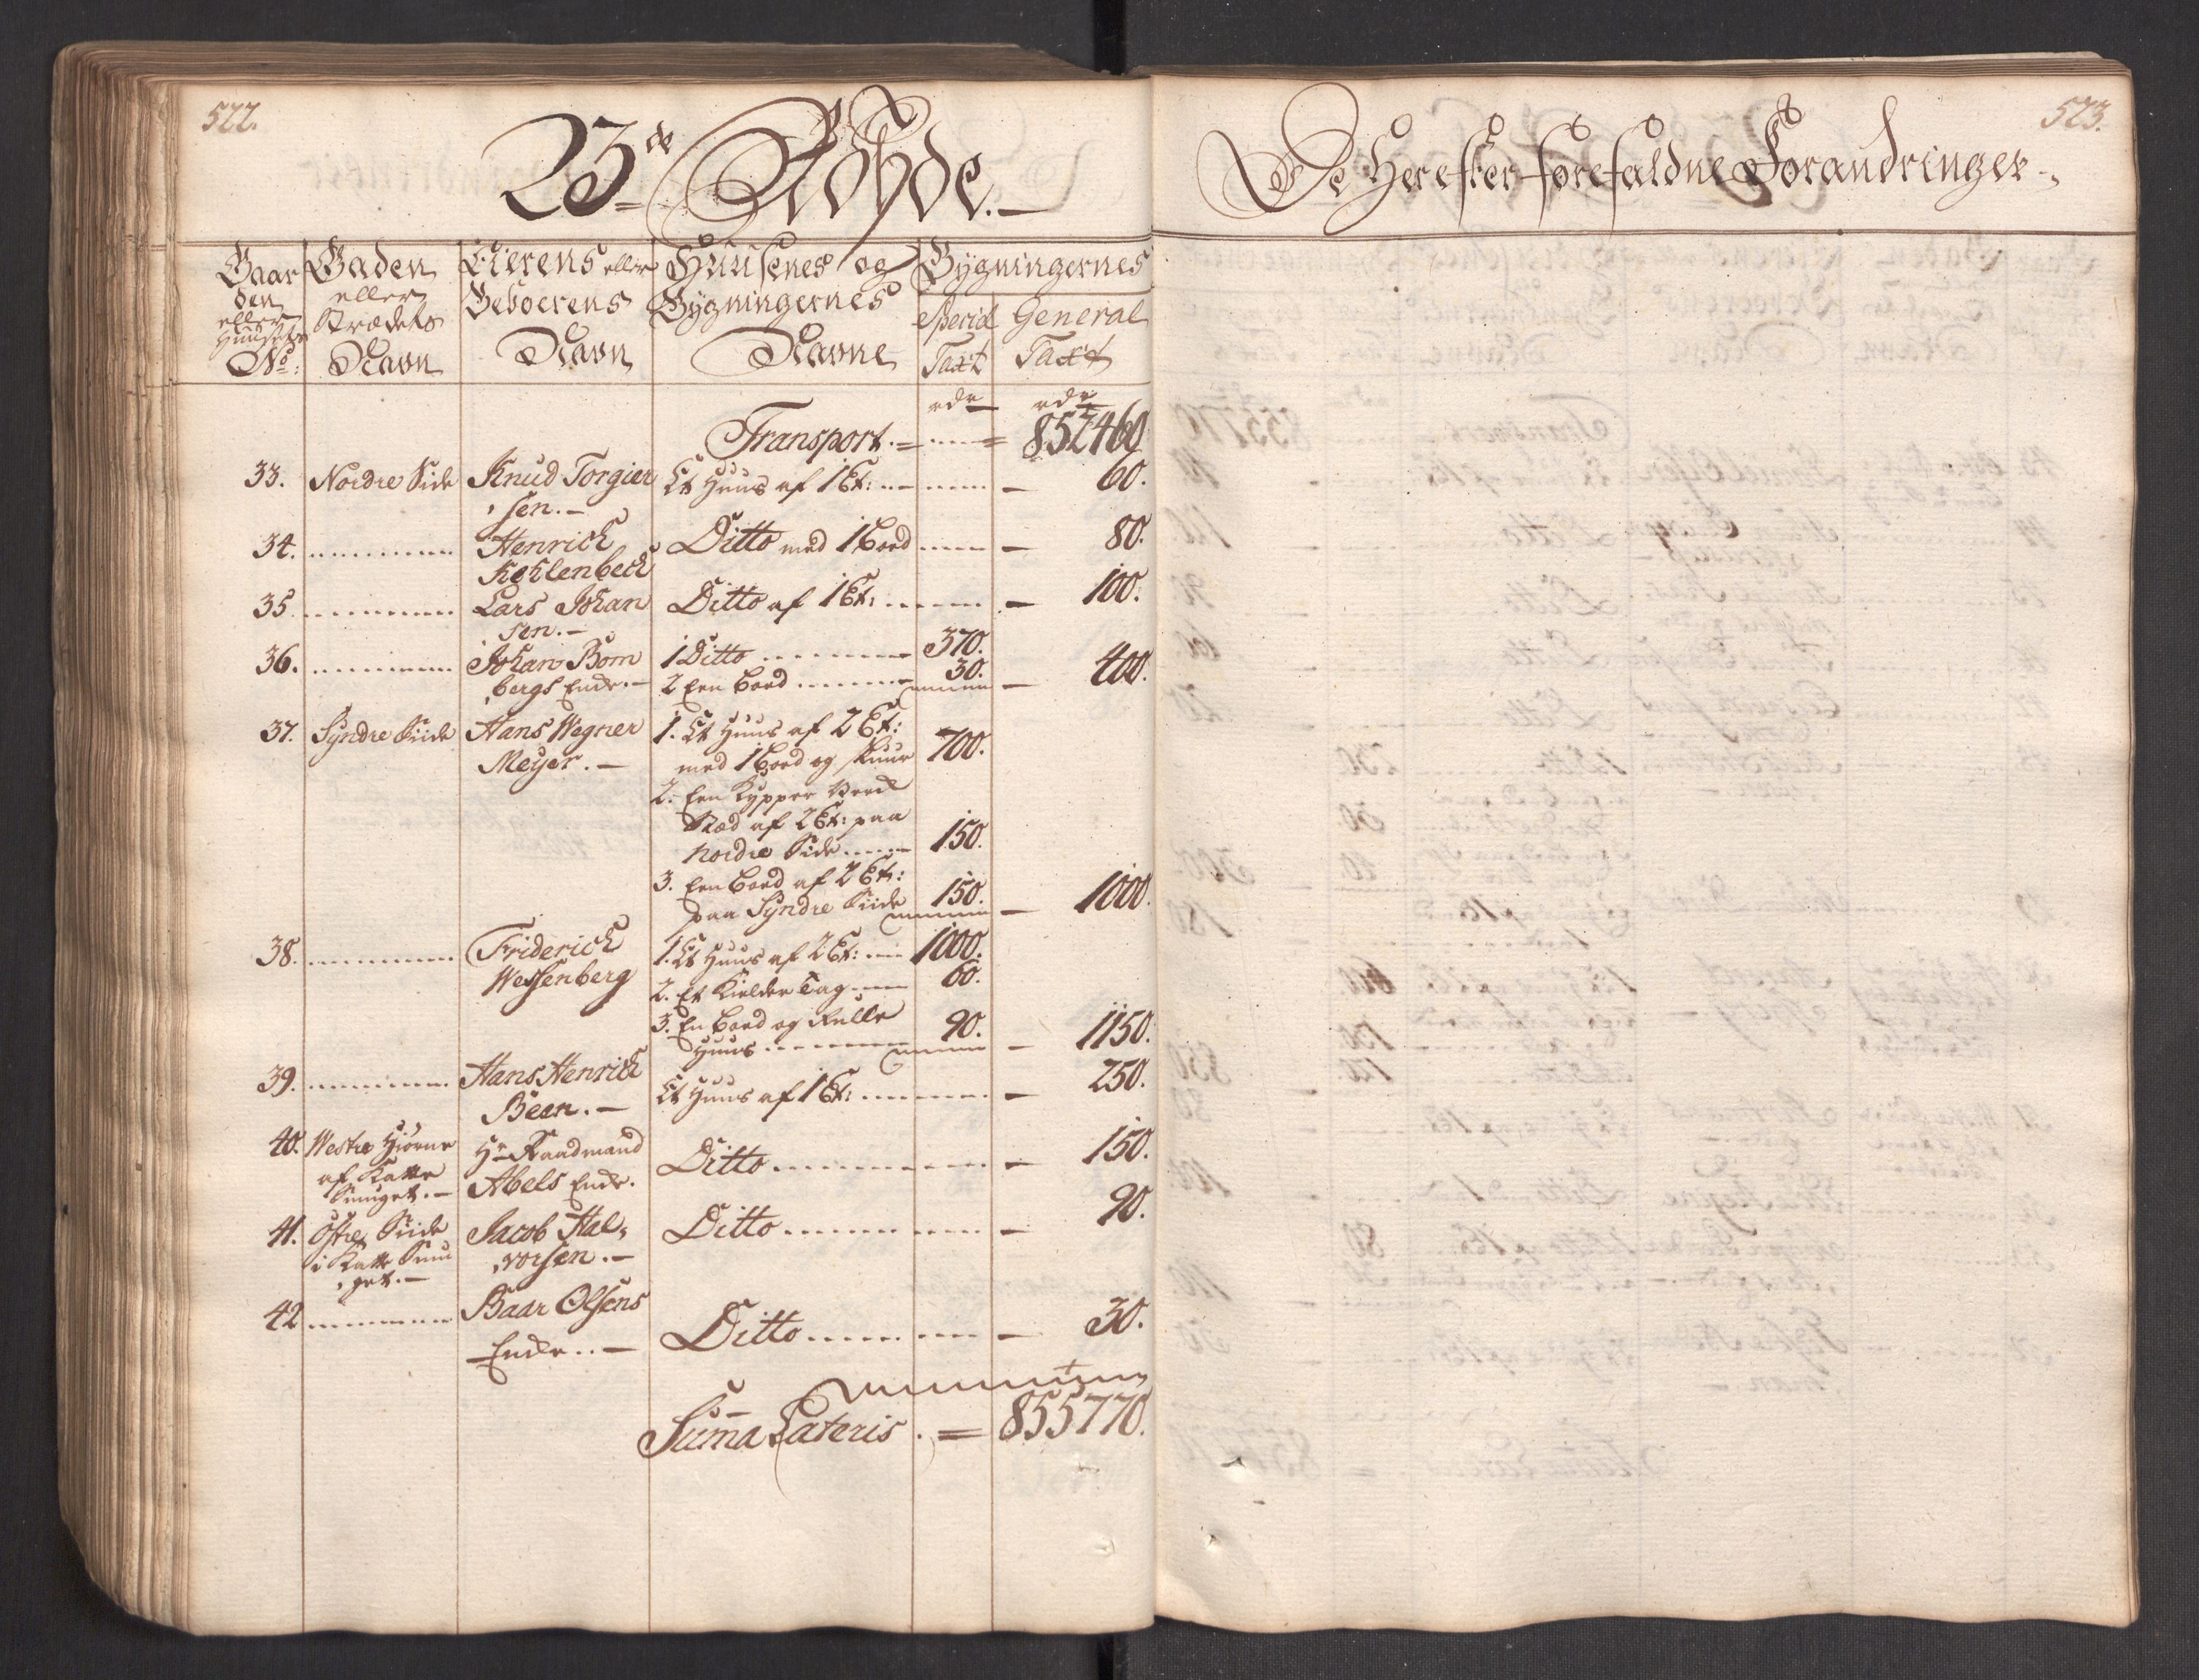 522.
23de Rohde.
Gaarden eller Huusets No:
Gaden eller Strædets Navn
Eierens eller Beboerens Navn
Huusenes og Bygningernes Navne
Bygningernes
Special Taxt
General Taxt
rdr rdr
Transport. = 852460
33. Nordre Side Knud Torgier Et Huus af 1 Et: 60.
sen.
34. Henrich Ditto med 1 Boed 80.
Kohlenbech
35. Lars Johan Ditto af 1 Et: 100.
sen.
36. Johan Bom 1 Ditto 370.
bergs Enke. 2 Een Boed 30. 400.
37. Syndre Siide Hans Wegner 1. Et Huus af 2 Et:
Meyer. med 1 Boed og Skuur 700.
2. Een Kypper
Stæd af 2 Et: paa
Nordre Side 150.
3. Een Boed af 2 Et:
paa Syndre Siide 150. 1000.
38. Friderich 1. Et Huus af 2 Et: 1000.
Wessenberg 2. Et Kielder Tag 60.
3. En Boed og Rulle
Huus 90. 1150.
39. Hans Henrich Et Huus af 1 Et: 250.
Been.
40. Westre Hiørne Hr Raadmand Ditto 150.
af Katte Abels Enke.
Smuget.
41. Østre Siide Jacob Hal, Ditto 90.
i Katte Smu vorsen.
get.
42 Baar Olsens Ditto 30.
Enke.
Summa Lateris. = 855770.
523.
De Herefter forefaldne Forandringer